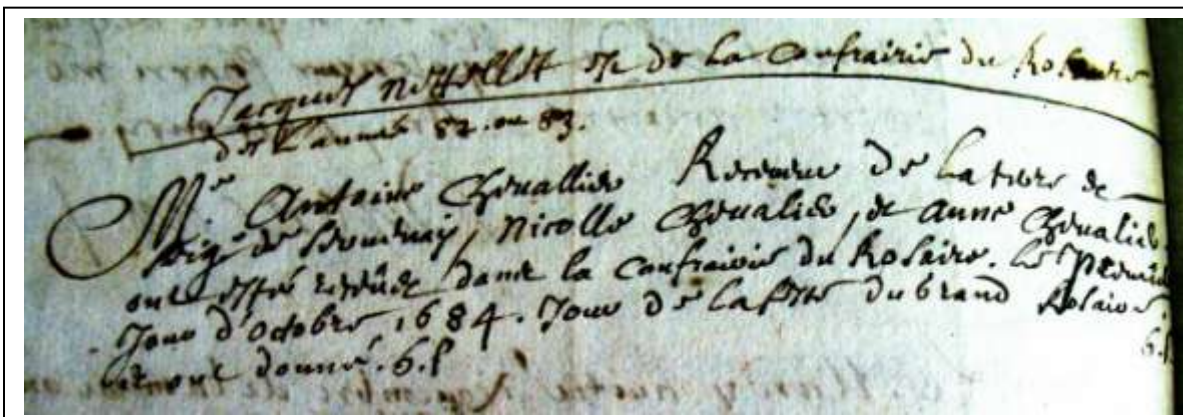 Jacques est de la Confrairie du Rosaire
dez L'année 82. ou 83.
Me Antoine Cheuallier Receueur de la terre de
seigrie de Nicolle Cheualier, et anne Cheualier
ont estés recüez dans la Confrairie du Rosaire. le premier
Jour d'octobre 1684. Jour de la feste du Grand Rosaire.
et ont donné. 6.ſ 6.ſ